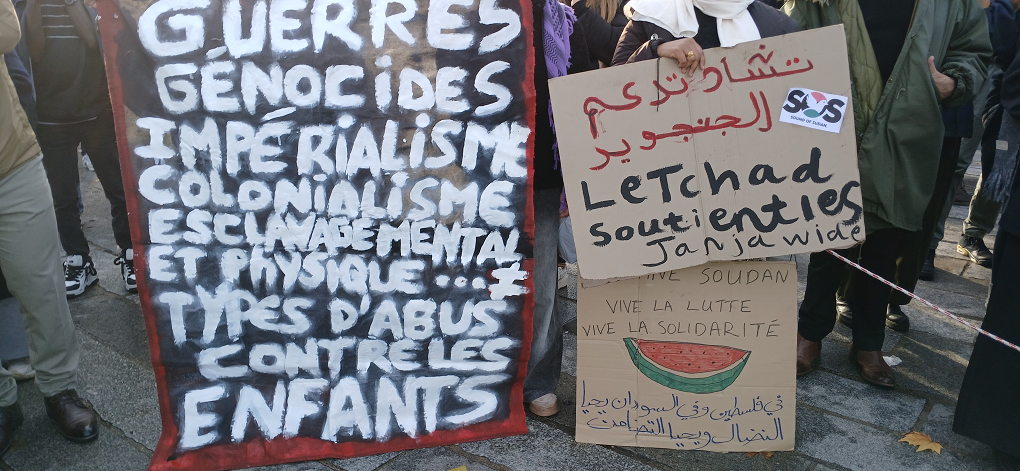 GUERRES
GÉNOCIDES
IMPÉRIALISME
COLONIALISME
ESCLAVAGE MENTAL
ET PHYSIQUE... ≠
TYPES D'ABUS
CONTRE LES
ENFANTS
تشاد تدعم
الجنجويد
SOS
SOUND OF SUDAN
Le Tchad
soutient les
Janjawide
SOUDAN
VIVE LA LUTTE
VIVE LA SOLIDARITÉ
في فلسطين وفي السودان يحيا
النضال ويحيا التضامن